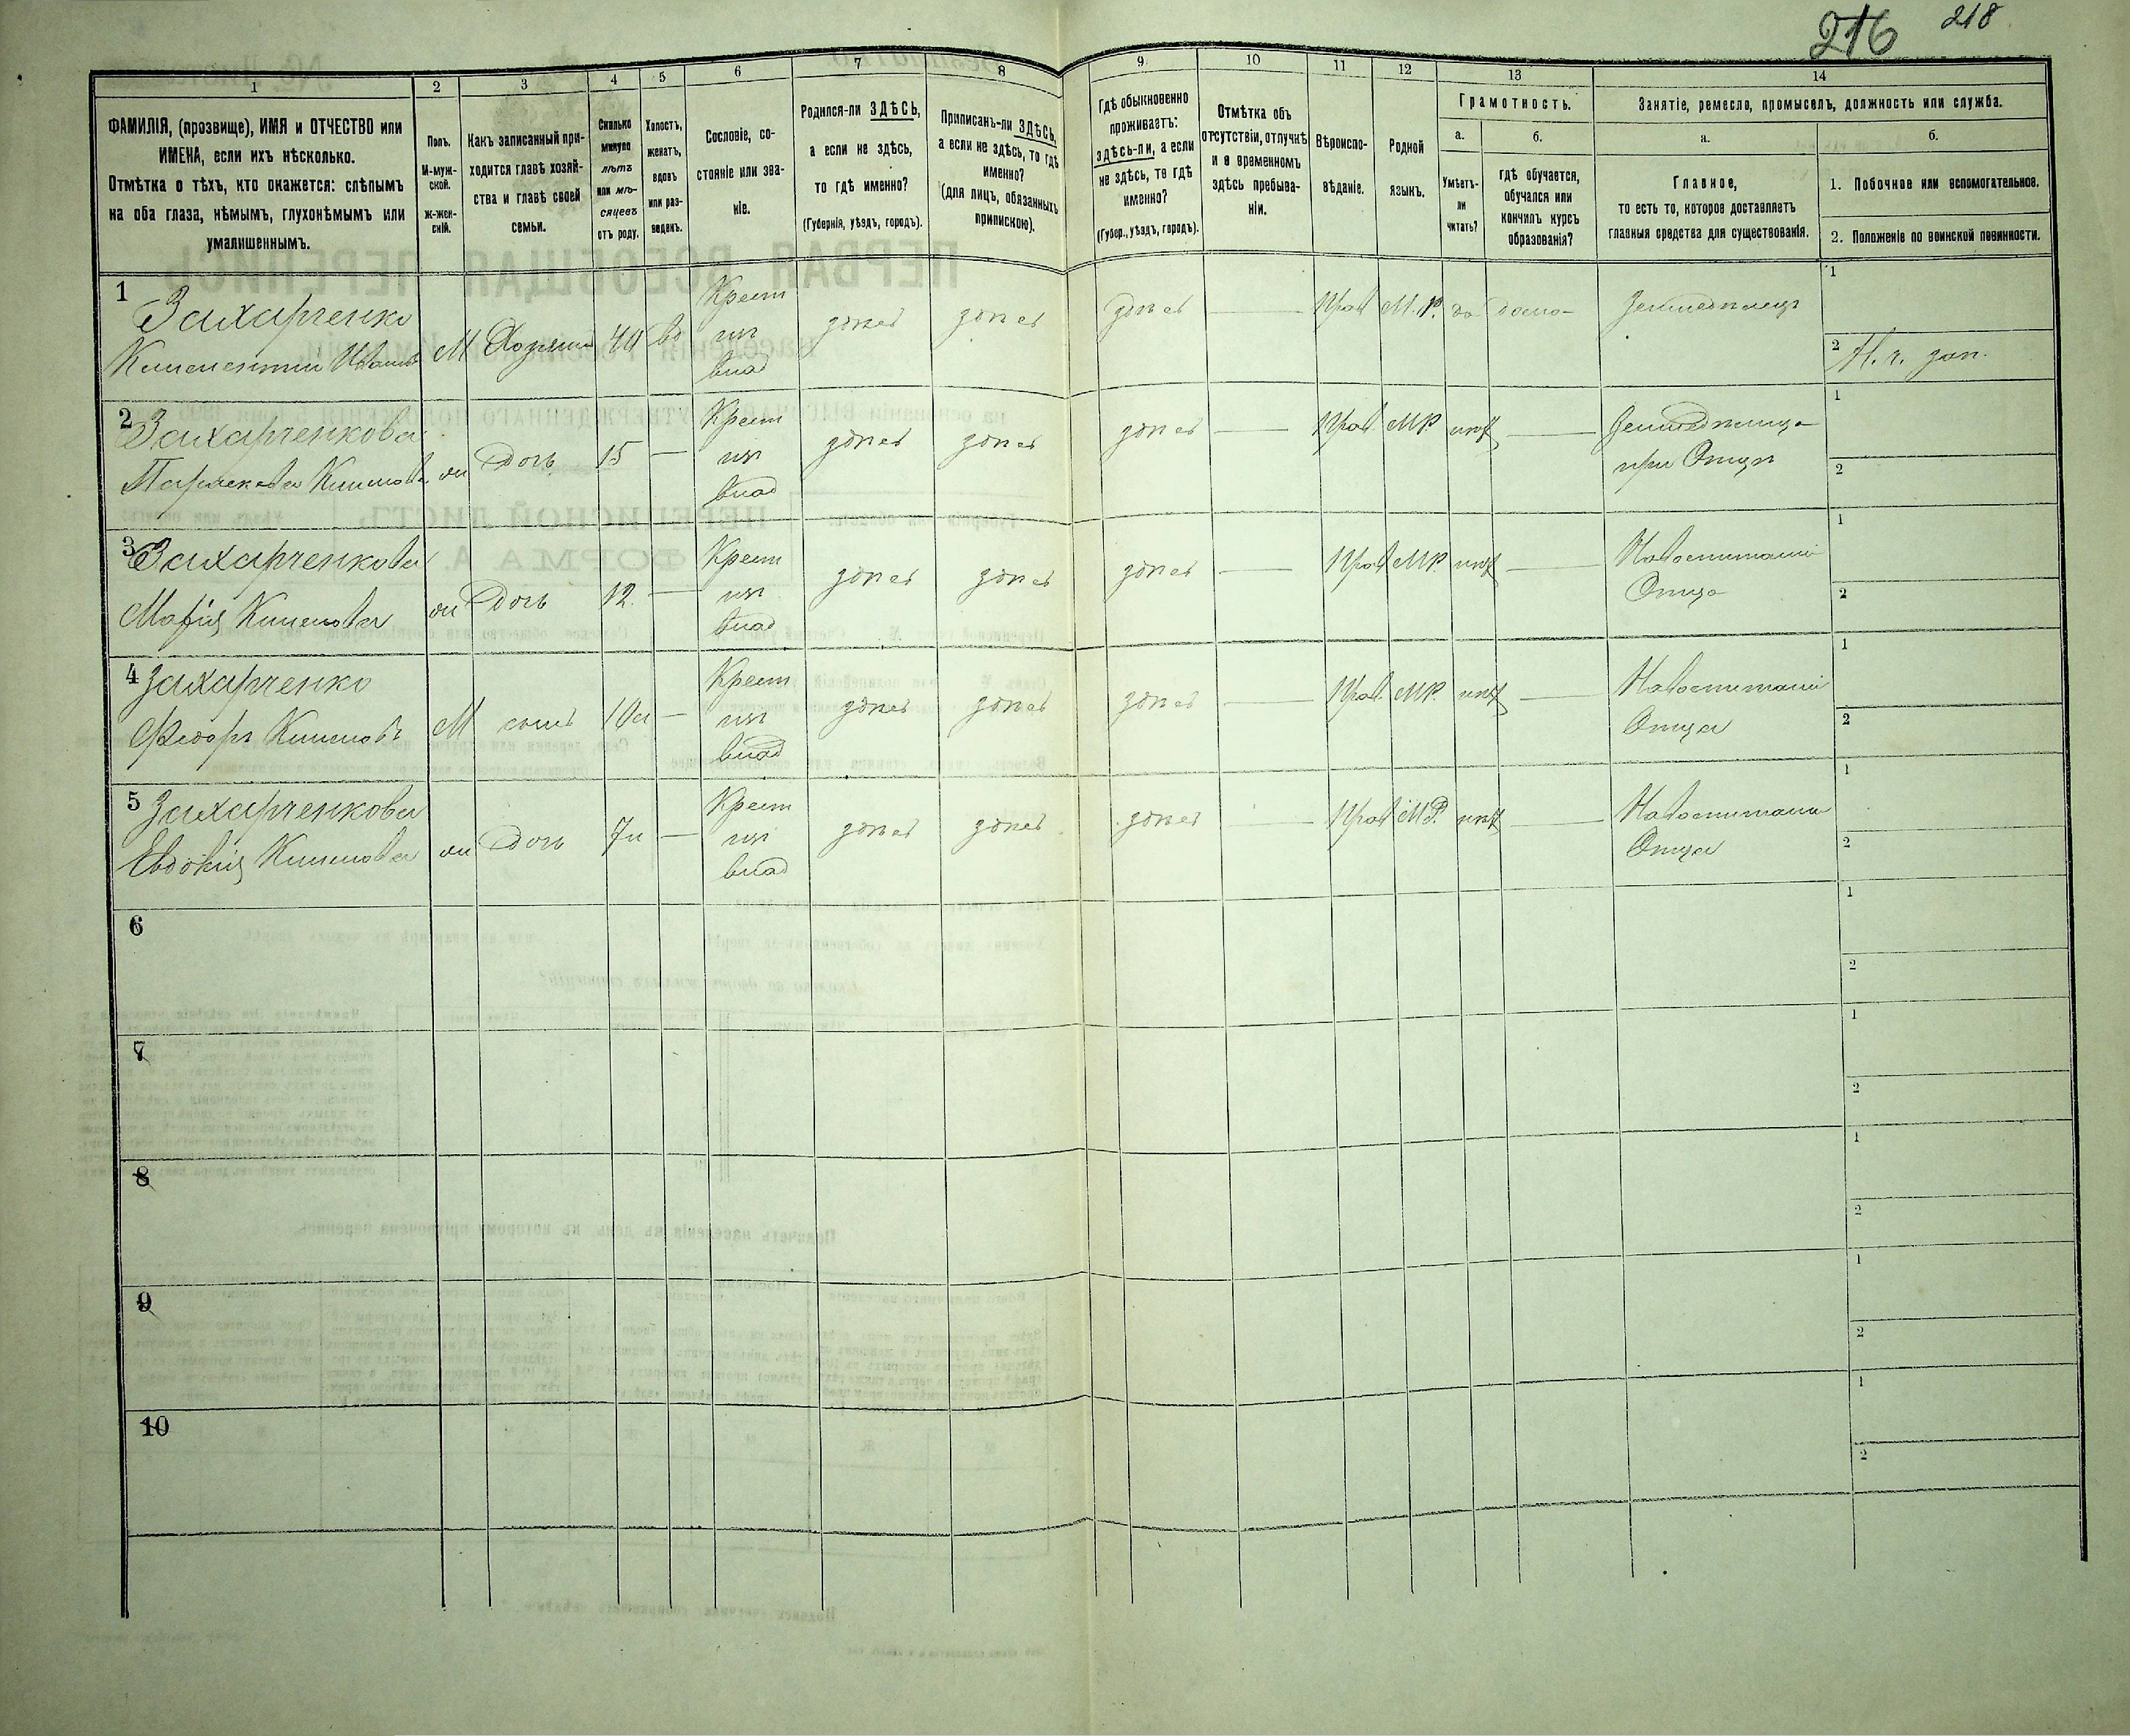 216 218
1 2 3 4 5 6 7 8 9 10 11 12 13 14
ФАМИЛІЯ, (прозвище), ИМЯ и ОТЧЕСТВО или
ИМЕНА, если ихъ нѣсколько.
Отмѣтка о тѣхъ, кто окажется: слѣпымъ
на оба глаза, нѣмымъ, глухонѣмымъ или
умалишеннымъ.
Полъ.
М-муж-
ской.
ж-жен-
скій.
Какъ записанный при-
ходится главѣ хозяй-
ства и главѣ своей
семьи.
Сколько
минуло
лѣтъ
или мѣ-
сяцевъ
отъ роду.
Холостъ,
женатъ,
вдовъ
или раз-
веденъ.
Сословіе, со-
стояніе или зва-
ніе.
Родился-ли ЗДѢСЬ,
а если не здѣсь,
то гдѣ именно?
(Губернія, уѣздъ, городъ).
Приписанъ-ли ЗДѢСЬ,
а если не здѣсь, то гдѣ
именно?
(для лицъ, обязанныхъ
припискою).
Гдѣ обыкновенно
проживаетъ:
здѣсь-ли, а если
не здѣсь, то гдѣ
именно?
(Губер., уѣздъ, городъ).
Отмѣтка объ
отсутствіи, отлучкѣ
и о временномъ
здѣсь пребыва-
ніи.
Вѣроиспо-
вѣданіе.
Родной
языкъ.
Грамотность.
а. б.
Умѣетъ-
ли
читать?
гдѣ обучается,
обучался или
кончилъ курсъ
образованія?
Занятіе, ремесло, промыселъ, должность или служба.
а. б.
Главное,
то есть то, которое доставляетъ
главныя средства для существованія.
1. Побочное или вспомогательное.
2. Положеніе по воинской повинности.
1 Захарченко
Климентій Иванов М Хозяинъ 40 вд Крест изъ влад здѣсь здѣсь здѣсь — Прав М.Р. да дома Земледѣлецъ
1
2 Н. ч. зап.
2 Захарченкова
Параскева Климова ж Дочь 15 — Крест изъ влад здѣсь здѣсь здѣсь — Прав. МР. нѣт — Земледѣлица
при Отцѣ
1
2
3 Захарченкова
Марія Климова ж Дочь 12. — Крест изъ влад здѣсь здѣсь здѣсь — Прав МР. нѣт —
Отца
1
2
4 Захарченко
Федоръ Климовъ М сынъ 10 — Крест изъ влад здѣсь здѣсь здѣсь — Прав. МР. нѣт —
Отца
1
2
5 Захарченкова
Евдокія Климова ж Дочь 7 — Крест изъ влад здѣсь здѣсь здѣсь — Прав МР. нѣт —
Отца
1
2
6
1
2
7
1
2
8
1
2
9
1
2
10
1
2